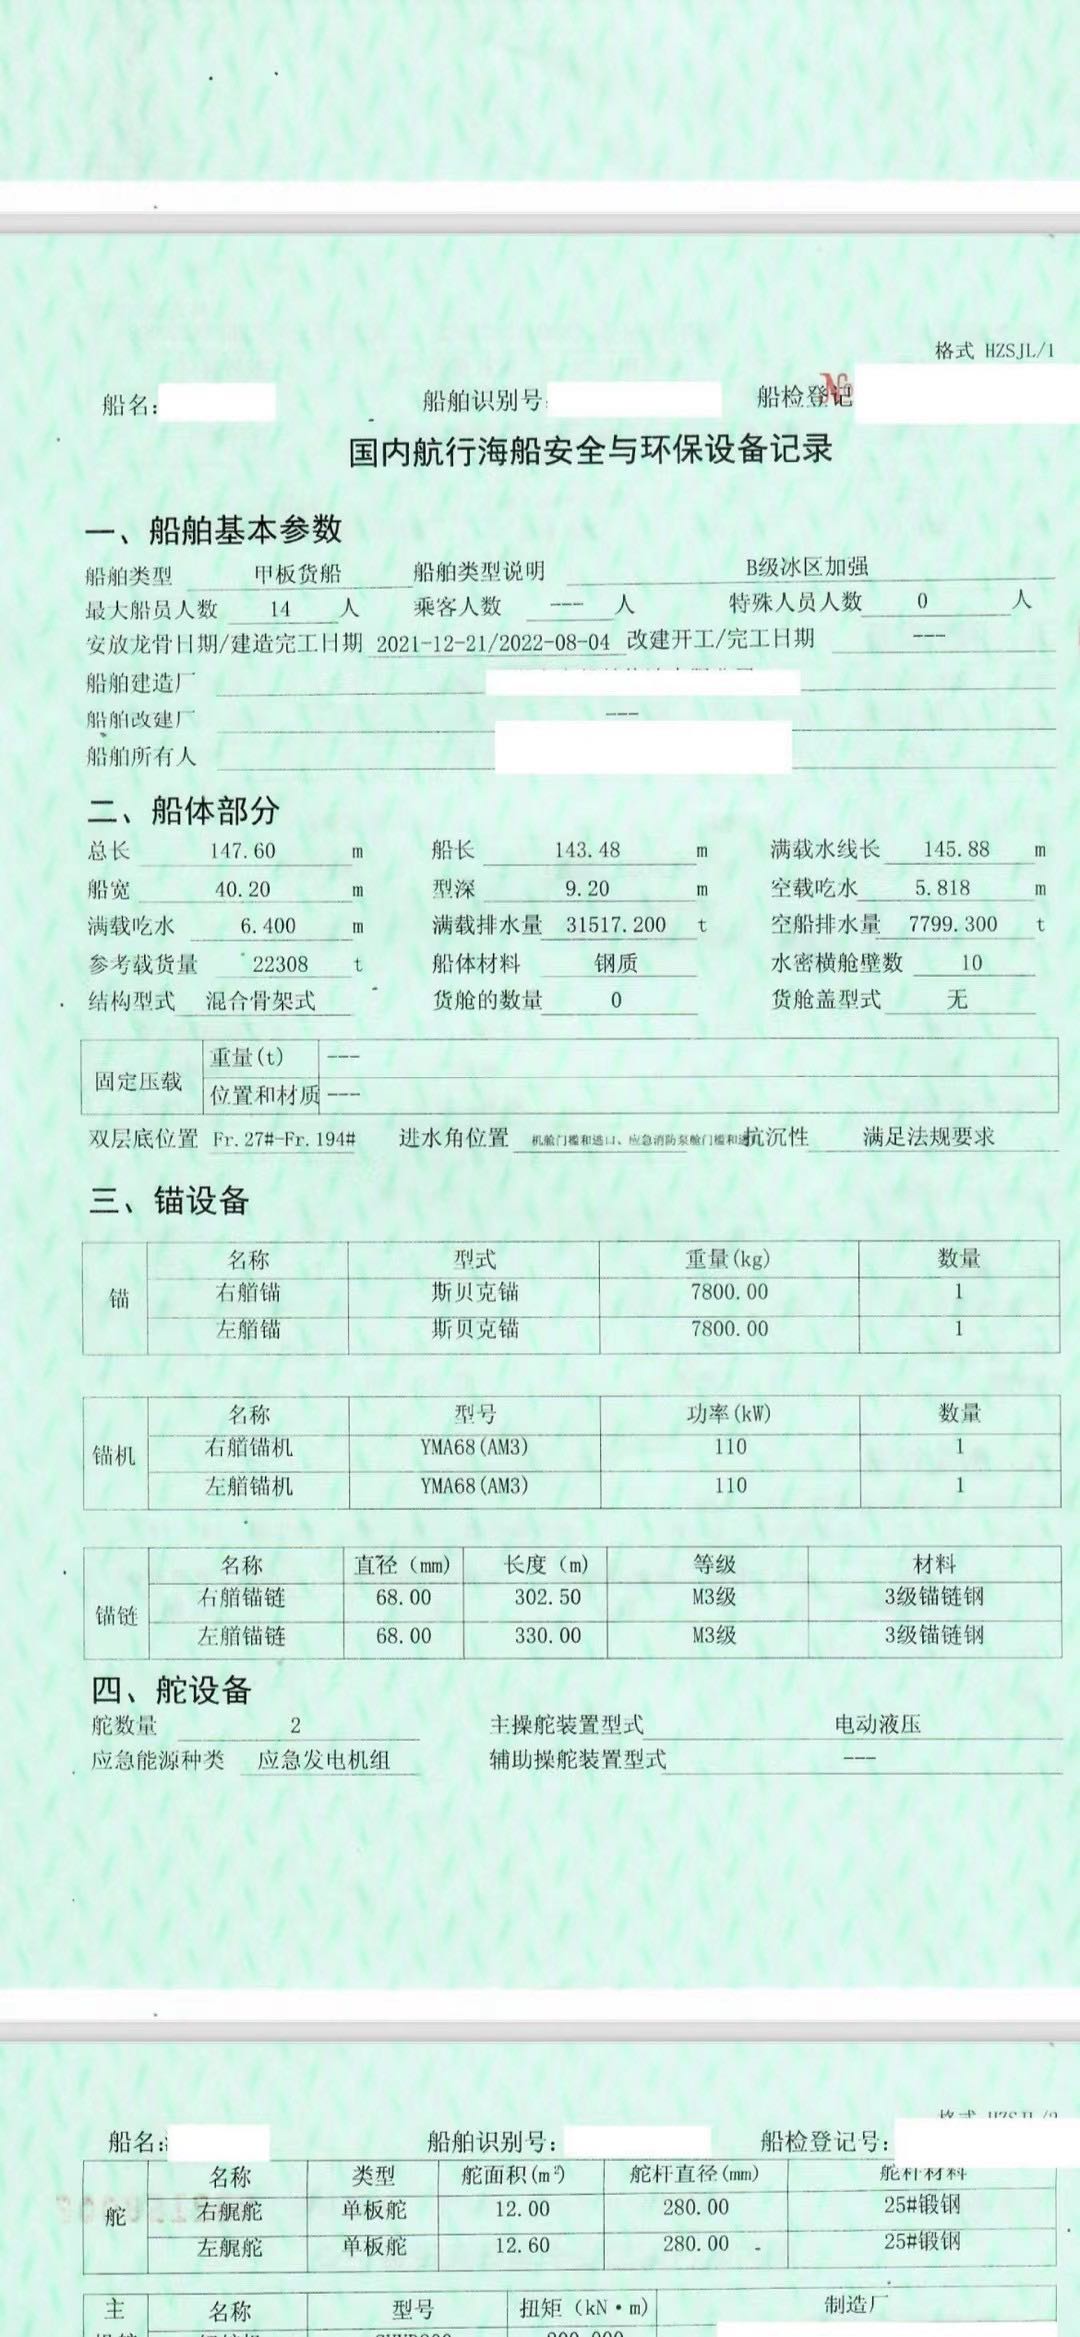 格式 HZSJL/1
船名: 船舶识别号: 船检登记
国内航行海船安全与环保设备记录
一、船舶基本参数
船舶类型 甲板货船 船舶类型说明 B级冰区加强
最大船员人数 14 人 乘客人数 --- 人 特殊人员人数 0 人
安放龙骨日期/建造完工日期 2021-12-21/2022-08-04 改建开工/完工日期 ---
船舶建造厂
船舶改建厂 ---
船舶所有人
二、船体部分
总长 147.60 m 船长 143.48 m 满载水线长 145.88 m
船宽 40.20 m 型深 9.20 m 空载吃水 5.818 m
满载吃水 6.400 m 满载排水量 31517.200 t 空船排水量 7799.300 t
参考载货量 22308 t 船体材料 钢质 水密横舱壁数 10
结构型式 混合骨架式 货舱的数量 0 货舱盖型式 无
固定压载 重量(t) ---
位置和材质 ---
双层底位置 Fr.27#-Fr.194# 进水角位置 机舱门槛和逃口、应急消防泵舱门槛和逃 抗沉性 满足法规要求
三、锚设备
锚 名称 型式 重量(kg) 数量
右艏锚 斯贝克锚 7800.00 1
左艏锚 斯贝克锚 7800.00 1
锚机 名称 型号 功率(kW) 数量
右艏锚机 YMA68(AM3) 110 1
左艏锚机 YMA68(AM3) 110 1
锚链 名称 直径 (mm) 长度 (m) 等级 材料
右艏锚链 68.00 302.50 M3级 3级锚链钢
左艏锚链 68.00 330.00 M3级 3级锚链钢
四、舵设备
舵数量 2 主操舵装置型式 电动液压
应急能源种类 应急发电机组 辅助操舵装置型式 ---
船名: 船舶识别号: 船检登记号:
舵 名称 类型 舵面积(m²) 舵杆直径(mm) 舵杆材料
右艉舵 单板舵 12.00 280.00 25#锻钢
左艉舵 单板舵 12.60 280.00 25#锻钢
主 名称 型号 扭矩 (kN·m) 制造厂